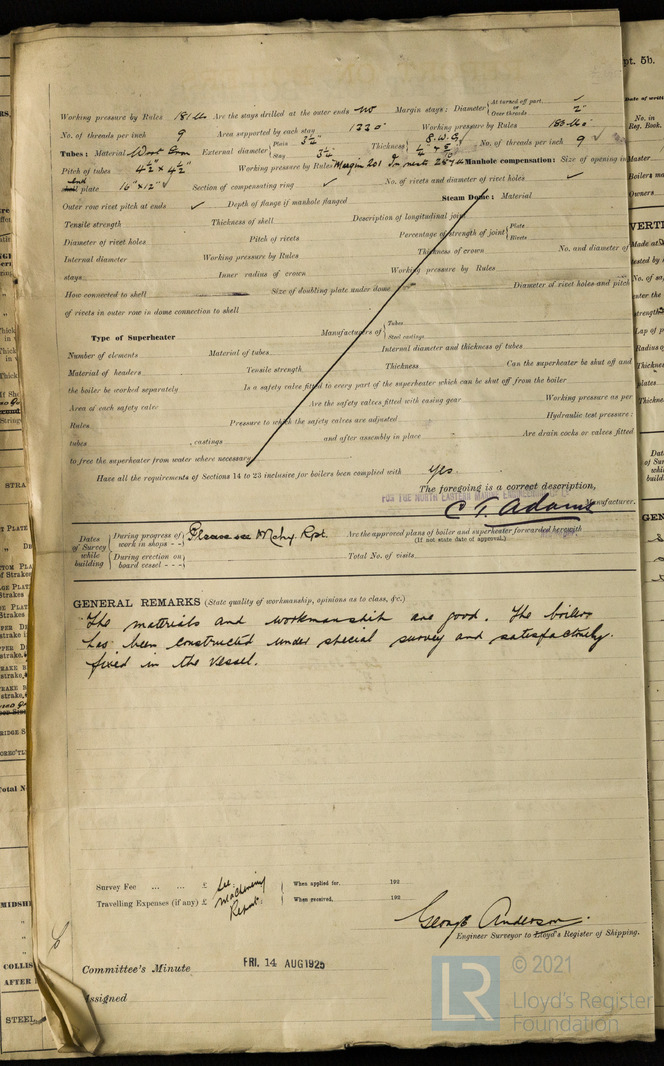 Working pressure by Rules 181 lb Are the stays drilled at the outer ends No Margin stays: Diameter { At turned off part, or Over threads 2"
No. of threads per inch 9 Area supported by each stay Working pressure by Rules
Tubes: Material Wrot Iron External diameter { Plain 3½" Stay 3½" Thickness { S.W.G. No. of threads per inch 9 ✓
Pitch of tubes 4½" × 4½" Working pressure by Rules Margin 201 Manhole compensation: Size of opening in
end shell plate 16" × 12" ✓ Section of compensating ring ✓ No. of rivets and diameter of rivet holes ✓
Outer row rivet pitch at ends ✓ Depth of flange if manhole flanged Steam Dome: Material
Tensile strength Thickness of shell Description of longitudinal joint
Diameter of rivet holes Pitch of rivets Percentage of strength of joint { Plate Rivets
Internal diameter Working pressure by Rules Thickness of crown No. and diameter of
stays Inner radius of crown Working pressure by Rules
How connected to shell Size of doubling plate under dome Diameter of rivet holes and pitch
of rivets in outer row in dome connection to shell
Type of Superheater Manufacturers of { Tubes Steel castings
Number of elements Material of tubes Internal diameter and thickness of tubes
Material of headers Tensile strength Thickness Can the superheater be shut off and
the boiler be worked separately Is a safety valve fitted to every part of the superheater which can be shut off from the boiler
Area of each safety valve Are the safety valves fitted with easing gear Working pressure as per
Rules Pressure to which the safety valves are adjusted Hydraulic test pressure:
tubes , castings and after assembly in place Are drain cocks or valves fitted
to free the superheater from water where necessary
Have all the requirements of Sections 14 to 23 inclusive for boilers been complied with Yes.
The foregoing is a correct description,
FOR THE NORTH EASTERN MARINE ENGINEERING CO. LD.
C. T. Adams Manufacturer.
Dates of Survey while building { During progress of work in shops - - } Please see Mchy. Rpt. Are the approved plans of boiler and superheater forwarded herewith
(If not state date of approval.)
{ During erection on board vessel - - - } Total No. of visits
GENERAL REMARKS (State quality of workmanship, opinions as to class, &c.)
The materials and workmanship are good. The boilers
has been constructed under special survey and satisfactorily
fixed in the vessel.
Survey Fee ... ... £ See { When applied for, 192
Travelling Expenses (if any) £ Machinery Report. { When received, 192
George Anderson.
Engineer Surveyor to Lloyd's Register of Shipping.
Committee's Minute FRI. 14 AUG 1925
Assigned
© 2021
LR Lloyd's Register
Foundation